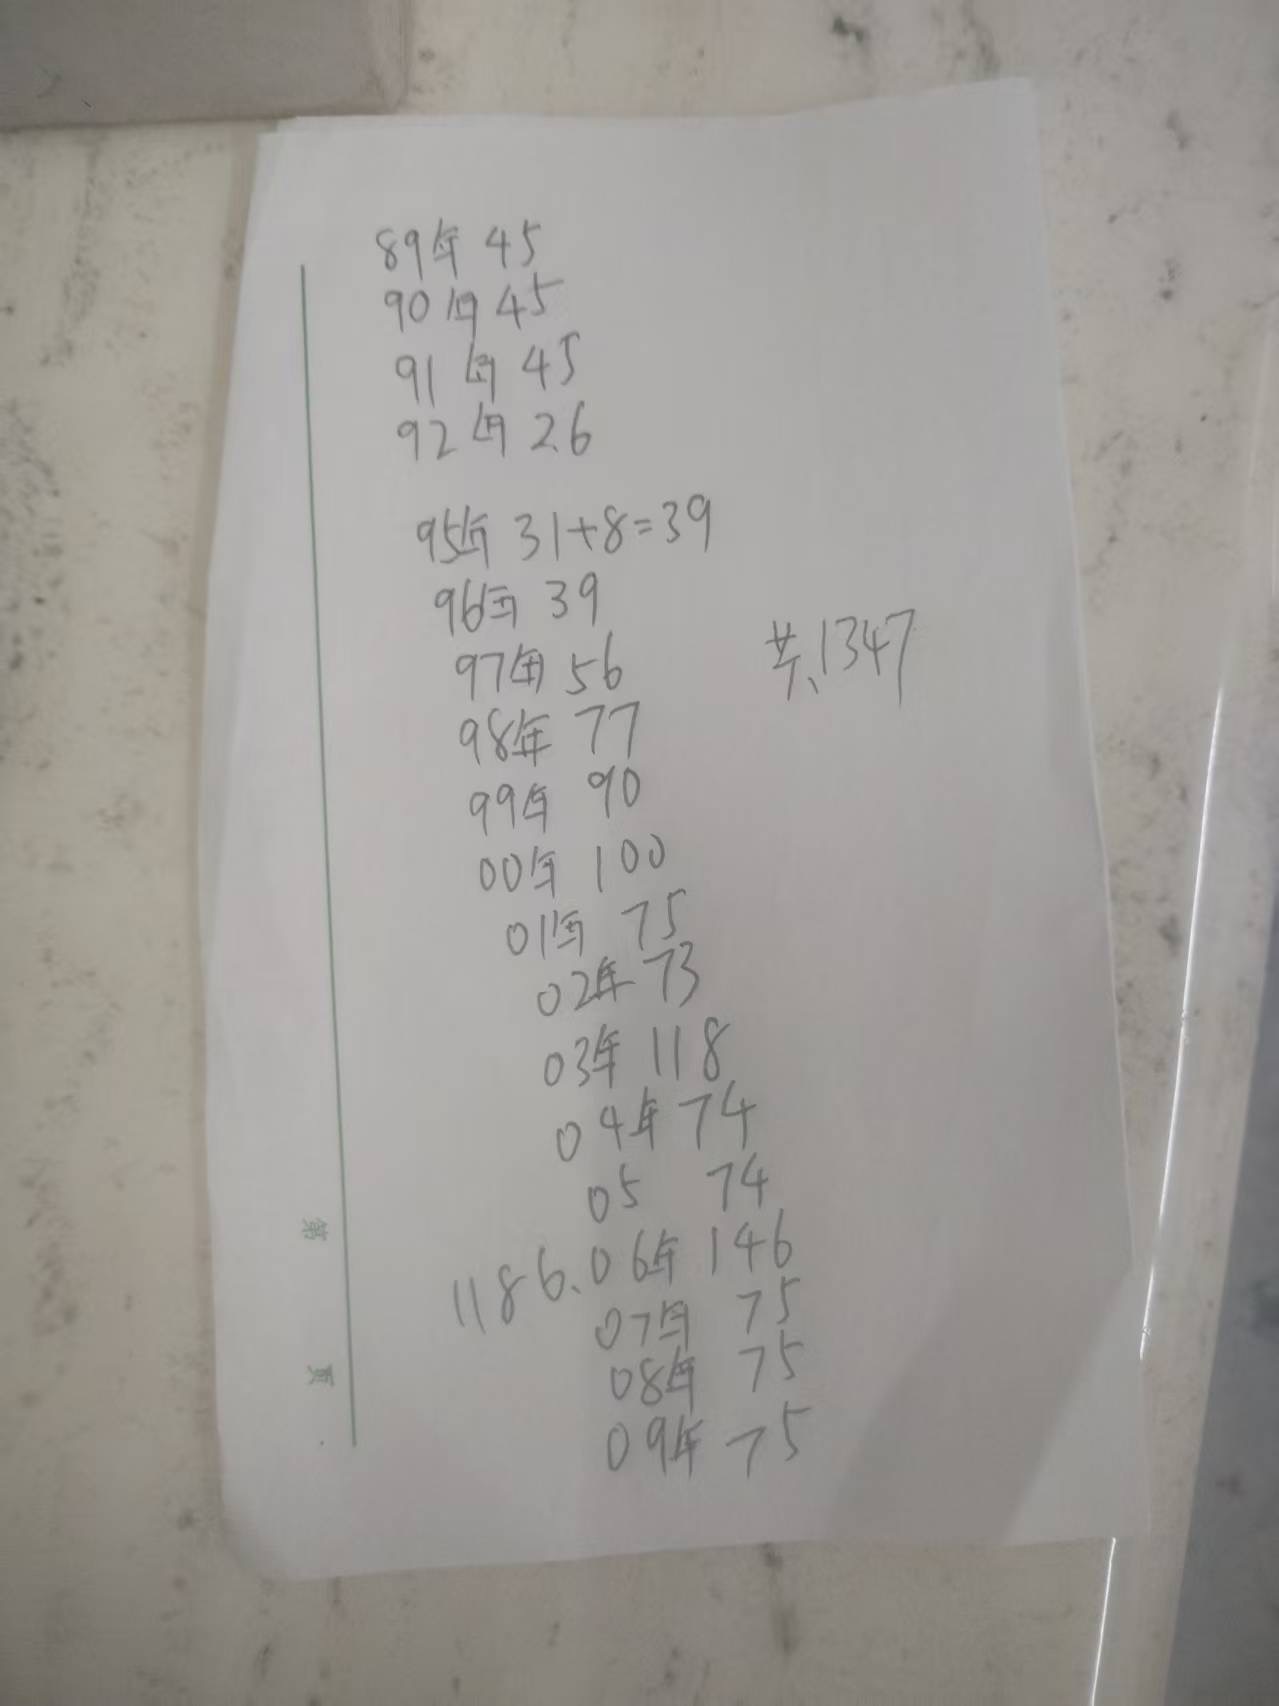 89年 45
90年 45
91年 45
92年 26
95年 31+8=39
96年 39
97年 56
98年 77
99年 90
00年 100
01年 75
02年 73
03年 118
04年 74
05 74
1186、06年 146
07年 75
08年 75
09年 75
共、1347
第 页